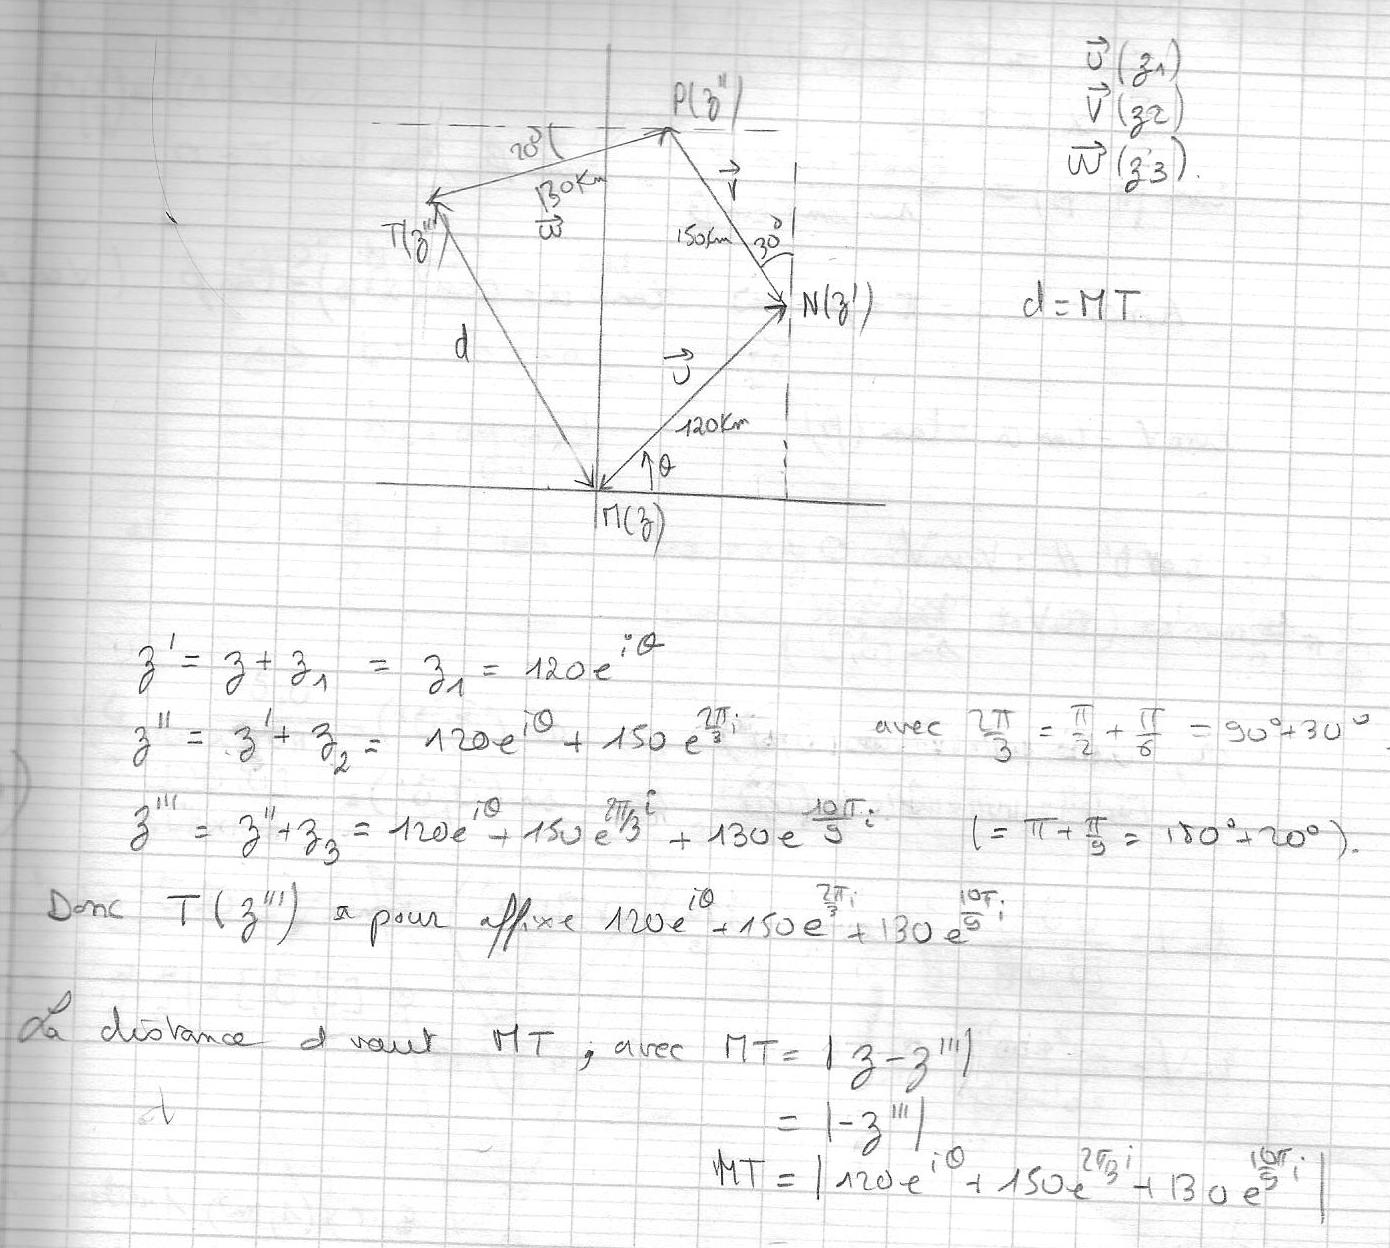 u⃗(z₁)
v⃗(z₂)
w⃗(z₃).
P(z'')
20°
130Km
w⃗
v⃗
150Km
30°
T(z''')
N(z')
d = MT
d
u⃗
120Km
θ
M(z)
z' = z + z₁ = z₁ = 120e^{iθ}
z'' = z' + z₂ = 120e^{iθ} + 150e^{2π/3 i} avec 2π/3 = π/2 + π/6 = 90° + 30°.
z''' = z'' + z₃ = 120e^{iθ} + 150e^{2π/3 i} + 130e^{10π/9 i} (= π + π/9 = 180° + 20°).
Donc T(z''') a pour affixe 120e^{iθ} + 150e^{2π/3 i} + 130e^{10π/9 i}
La distance d vaut MT, avec MT = |z - z'''|
= |-z'''|
MT = |120e^{iθ} + 150e^{2π/3 i} + 130e^{10π/9 i}|